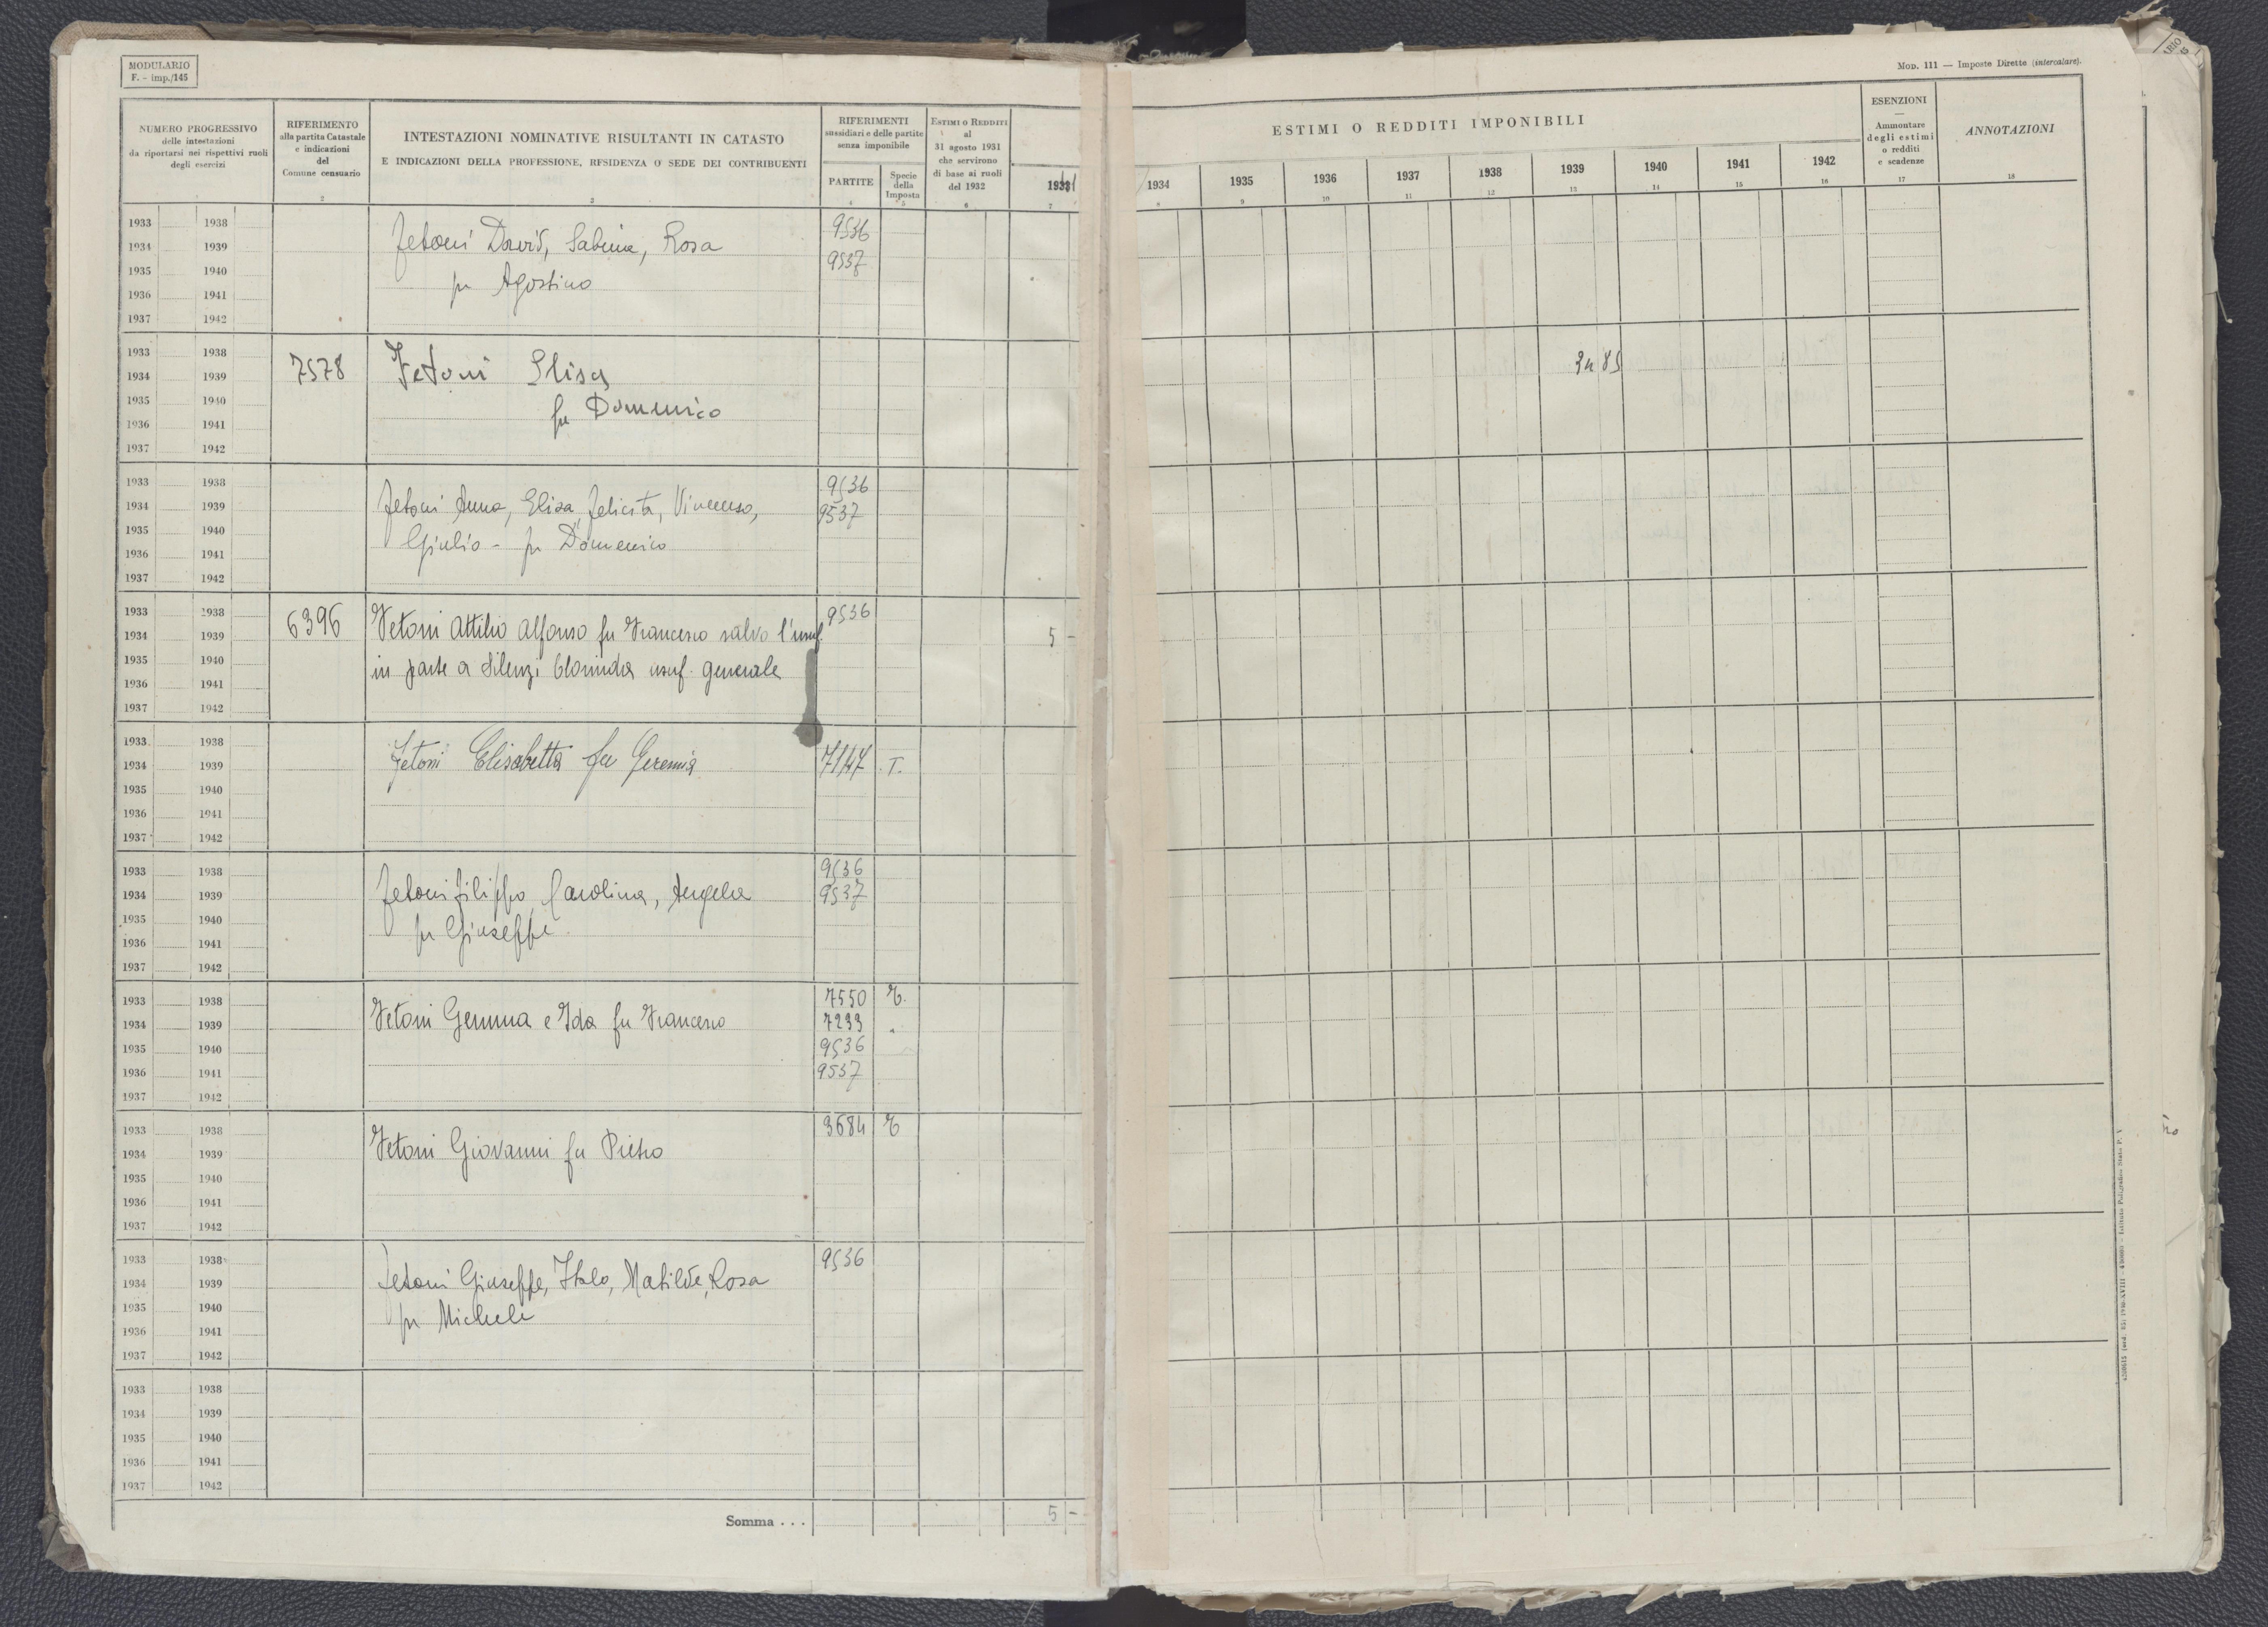 MODULARIO
F. - imp./145
MOD. 111 — Imposte Dirette (intercalare).
NUMERO PROGRESSIVO
delle intestazioni
da riportarsi nei rispettivi ruoli
degli esercizi
RIFERIMENTO
alla partita Catastale
e indicazioni
del
Comune censuario
2
INTESTAZIONI NOMINATIVE RISULTANTI IN CATASTO
E INDICAZIONI DELLA PROFESSIONE, RESIDENZA O SEDE DEI CONTRIBUENTI
3
RIFERIMENTI
sussidiari e delle partite
senza imponibile
PARTITE
4
Specie
della
Imposta
5
ESTIMI O REDDITI
al
31 agosto 1931
che servirono
di base ai ruoli
del 1932
6
ESTIMI O REDDITI IMPONIBILI
1933
7
1934
8
1935
9
1936
10
1937
11
1938
12
1939
13
1940
14
1941
15
1942
16
ESENZIONI
—
Ammontare
degli estimi
o redditi
e scadenze
17
ANNOTAZIONI
18
1933 1938
1934 1939
1935 1940
1936 1941
1937 1942
Fetoni David, Sabina, Rosa
fu Agostino
9536
9537
1933 1938
1934 1939
1935 1940
1936 1941
1937 1942
7578
Fetoni Elisa
fu Domenico
34 85
1933 1938
1934 1939
1935 1940
1936 1941
1937 1942
Fetoni Anna, Elisa, Felicita, Vincenzo,
Giulio - fu Domenico
9536
9537
1933 1938
1934 1939
1935 1940
1936 1941
1937 1942
6396
Fetoni Attilio Alfonso fu Francesco salvo l'usuf.
in parte a Silenzi Clorinda usuf. generale
9536
5 -
1933 1938
1934 1939
1935 1940
1936 1941
1937 1942
Fetoni Elisabetta fu Geremia
7147 T.
1933 1938
1934 1939
1935 1940
1936 1941
1937 1942
Fetoni Filippo, Carolina, Angela
fu Giuseppe
9536
9537
1933 1938
1934 1939
1935 1940
1936 1941
1937 1942
Fetoni Gemma e Ida fu Francesco
7550 T.
7233 "
9536
9537
1933 1938
1934 1939
1935 1940
1936 1941
1937 1942
Fetoni Giovanni fu Pietro
3684 T
1933 1938
1934 1939
1935 1940
1936 1941
1937 1942
Fetoni Giuseppe, Italo, Matilde, Rosa
fu Michele
9536
1933 1938
1934 1939
1935 1940
1936 1941
1937 1942
Somma . . .
5 -